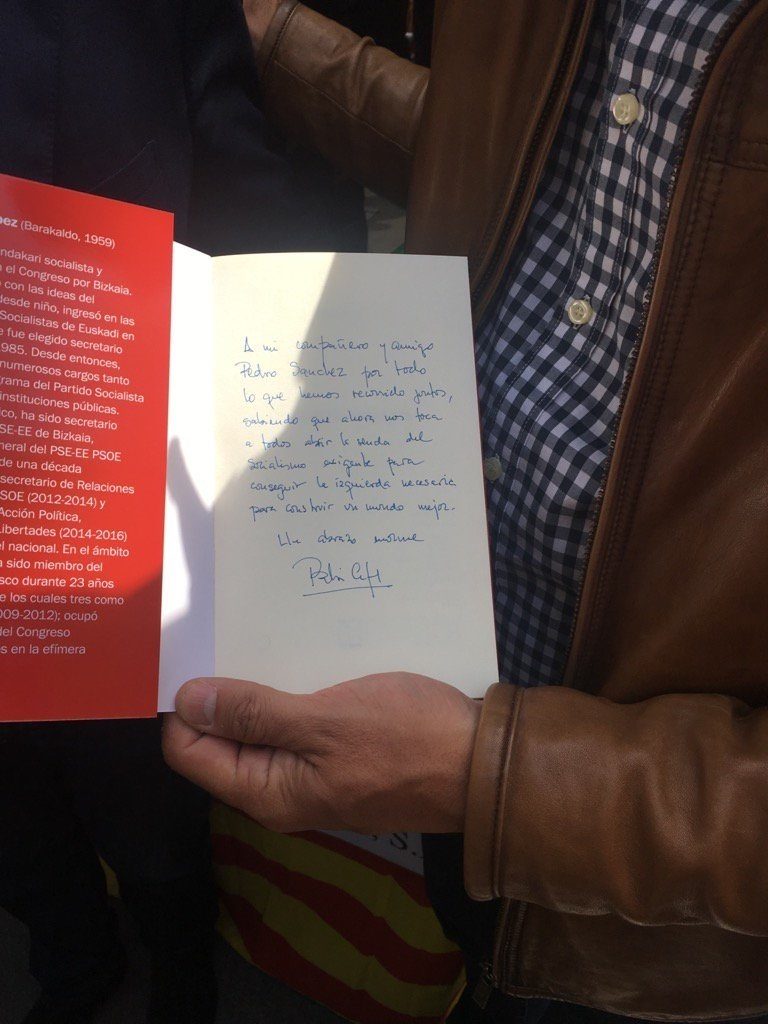 pez (Barakaldo, 1959)
ndakari socialista y
n el Congreso por Bizkaia.
con las ideas del
desde niño, ingresó en las
Socialistas de Euskadi en
e fue elegido secretario
1985. Desde entonces,
numerosos cargos tanto
grama del Partido Socialista
instituciones públicas.
ico, ha sido secretario
PSE-EE de Bizkaia,
neral del PSE-EE PSOE
de una década
secretario de Relaciones
PSOE (2012-2014) y
Acción Política,
Libertades (2014-2016)
el nacional. En el ámbito
a sido miembro del
sco durante 23 años
e los cuales tres como
2009-2012); ocupó
del Congreso
s en la efímera
A mi compañero y amigo
Pedro Sánchez por todo
lo que hemos recorrido juntos,
sabiendo que ahora nos toca
a todos abrir la senda del
socialismo exigente para
conseguir la izquierda necesaria
para construir un mundo mejor.
Un abrazo enorme